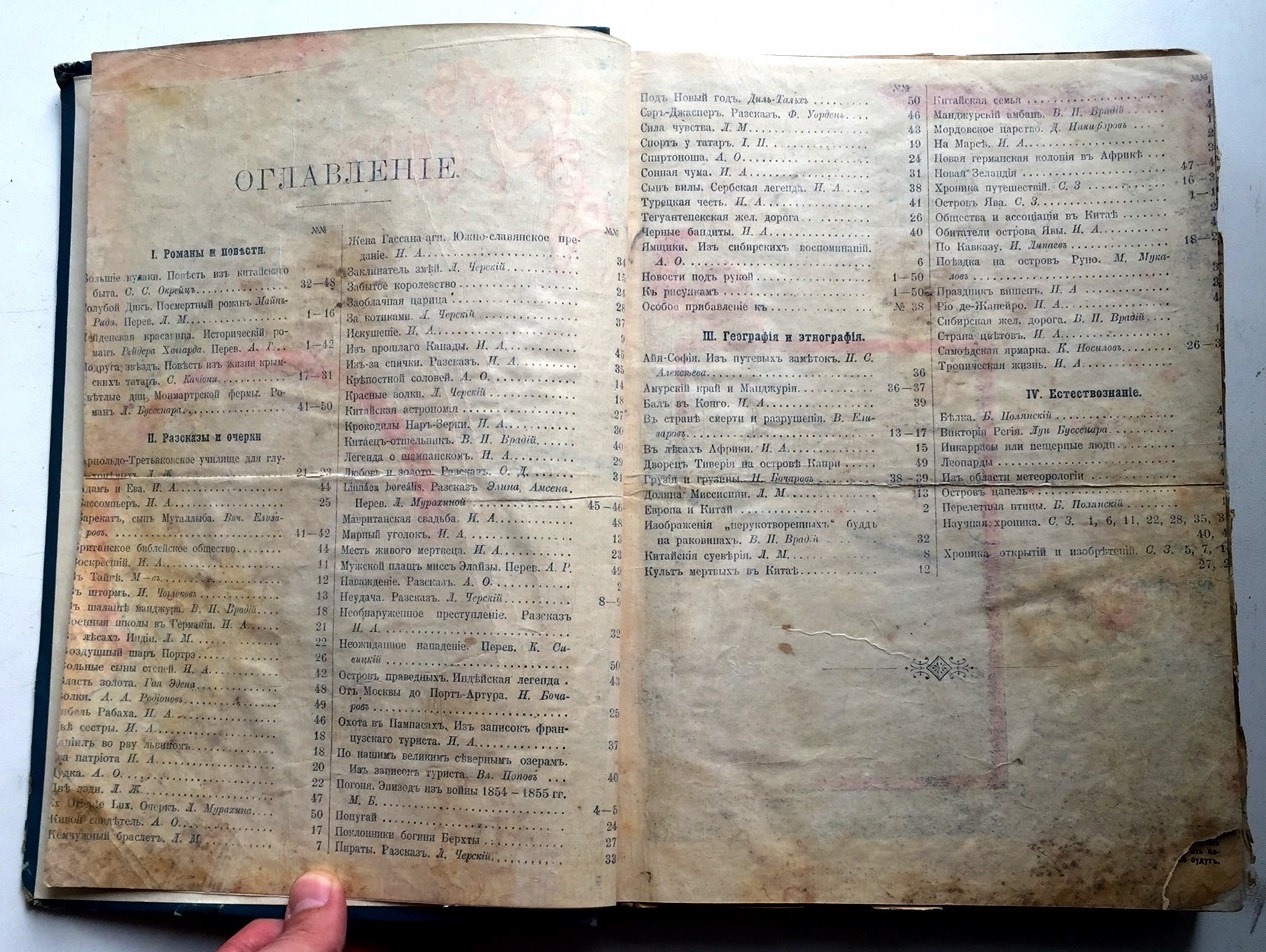 ОГЛАВЛЕНІЕ.
№№
I. Романы и повѣсти.
Большіе кулаки. Повѣсть изъ китайскаго
быта. С. С. Окрейцъ 32—48
Голубой Дикъ. Посмертный романъ Майнъ-
Рида. Перев. Л. М. 1—16
Лейденская красавица. Историческій ро-
манъ Рейдера Хаггарда. Перев. А. Г. 1—42
Подруга звѣздъ. Повѣсть изъ жизни крым-
скихъ татаръ. С. Качіони 17—31
Свѣтлые дни, Монмартрской фермы. Ро-
манъ Л. Буссенара 41—50
II. Разсказы и очерки
Арнольдо-Третьяковское училище для глу-
хонѣмыхъ Л. Ж. 21—23
Адамъ и Ева. И. А. 44
Бассомпьеръ. И. А. 25
Барекатъ, сынъ Муталлыба. Вяч. Елиза-
ровъ 41—42
Британское библейское общество 44
Воскресшій. И. А. 11
Въ Тайгѣ. М—въ 12
Въ штормъ. И. 13
Въ шалашѣ манджура. В. П. Врадій 18
Военныя школы въ Германіи. И. А. 21
Въ лѣсахъ Индіи. Л. М. 22
Воздушный шаръ Портрэ 26
Вольные сыны степей. И. А. 42
Власть золота. Гая Эдена 48
Волки. А. А. Родіоновъ 49
Гибель Рабаха. И. А. 46
Двѣ сестры. И. А. 18
Даніилъ во рву львиномъ 18
Два патріота И. А. 20
Дудка. А. О. 22
Двѣ лэди. Л. Ж. 47
Ex Oriente Lux. Очеркъ. Л. Мурахина 50
Живой свидѣтель. А. О. 17
Жемчужный браслетъ. Л. М. 7
№
Жена Гассана-аги. Южно-славянское пре-
даніе. И. А. 34
Заклинатель змѣй. Л. Черскій 15
Забытое королевство 24
Заоблачная царица 28
За котиками. Л. Черскій 37
Искушеніе. И. А. 9
Изъ прошлаго Канады. И. А. 45
Изъ-за спички. Разсказъ. И. А. 35
Крѣпостной соловей. А. О. 14
Красные волки. Л. Черскій 18
Китайская астрономія 27
Крокодилы Наръ-Зерки. И. А. 30
Китаецъ-отшельникъ. В. П. Врадій 40
Легенда о шампанскомъ. И. А. 29
Любовь и золото. Разсказъ. О. Д. 31
Linnaea borealis. Разсказъ Элина, Амсена.
Перев. Л. Мурахиной 45—46
Мавританская свадьба. И. А. 48
Мирный уголокъ. И. А. 13
Месть живого мертвеца. И. А. 23
Мужской плащъ миссъ Элайзы. Перев. А. Р. 49
Навожденіе. Разсказъ. А. О. 2
Неудача. Разсказъ. Л. Черскій 8—9
Необнаруженное преступленіе. Разсказъ
И. А. 32
Неожиданное нападеніе. Перев. К. Си-
вицкій 50
Островъ праведныхъ. Индѣйская легенда 43
Отъ Москвы до Портъ-Артура. Н. Боча-
ровъ 25
Охота въ Пампасахъ. Изъ записокъ фран-
цузскаго туриста. И. А. 37
По нашимъ великимъ сѣвернымъ озерамъ.
Изъ записокъ туриста. Вл. Поповъ 40
Погоня. Эпизодъ изъ войны 1854—1855 гг.
М. Б. 4—5
Попугай 24
Поклонники богини Берхты 27
Пираты. Разсказъ. Л. Черскій 33
№№
Подъ Новый годъ. Диль-Тальхъ 50
Сэръ-Джасперъ. Разсказъ. Ф. Уорденъ 46
Сила чувства. Л. М. 43
Спортъ у татаръ. І. П. 19
Спиртоноша. А. О. 24
Сонная чума. И. А. 31
Сынъ вилы. Сербская легенда. И. А. 38
Турецкая честь. И. А. 41
Тегуантепекская жел. дорога 26
Черные бандиты. И. А. 40
Ямщики. Изъ сибирскихъ воспоминаній.
А. О. 6
Новости подъ рукой 1—50
Къ рисункамъ 1—50
Особое прибавленіе къ № 38
III. Географія и этнографія.
Айя-Софія. Изъ путевыхъ замѣтокъ. П. С.
Алексѣева 36
Амурскій край и Манджурія 36—37
Балъ въ Конго. И. А. 39
Въ странѣ смерти и разрушенія. В. Ели-
заровъ 13—17
Въ лѣсахъ Африки. И. А. 15
Дворецъ Тиверія на островѣ Капри 49
Грузія и грузины. Н. Бочаровъ 38—39
Долина Миссисипи. Л. М. 13
Европа и Китай 2
Изображенія „нерукотворенныхъ“ буддъ
на раковинахъ. В. П. Врадій 32
Китайскія суевѣрія. Л. М. 8
Культъ мертвыхъ въ Китаѣ 12
№№
Китайская семья
Манджурскій амбань. В. П. Врадій
Мордовское царство. Д. Никифоровъ
На Марсѣ. И. А.
Новая германская колонія въ Африкѣ
Новая Зеландія 47—4
Хроника путешествій. С. З. 16—3
Островъ Ява. С. З. 1—1
Общества и ассоціаціи въ Китаѣ
Обитатели острова Явы. И. А.
По Кавказу. И. Липаевъ 18—2
Поѣздка на островъ Руно. М. Мука-
ловъ
Праздникъ вишенъ. И. А.
Ріо-де-Жанейро. И. А.
Сибирская жел. дорога. В. П. Врадій
Страна цвѣтовъ. И. А.
Самоѣдская ярмарка. К. Носиловъ 26—3
Тропическая жизнь. И. А.
IV. Естествознаніе.
Бѣлка. Б. Полянскій
Викторія Регія. Луи Буссенара
Инкаррасы или пещерные люди
Леопарды
Изъ области метеорологіи
Островъ цапель
Перелетныя птицы. Б. Полянскій
Научная хроника. С. З. 1, 6, 11, 22, 28, 35, 3
40, 4
Хроника открытій и изобрѣтеній. С. З. 5, 7, 1
27, 2
будутъ.